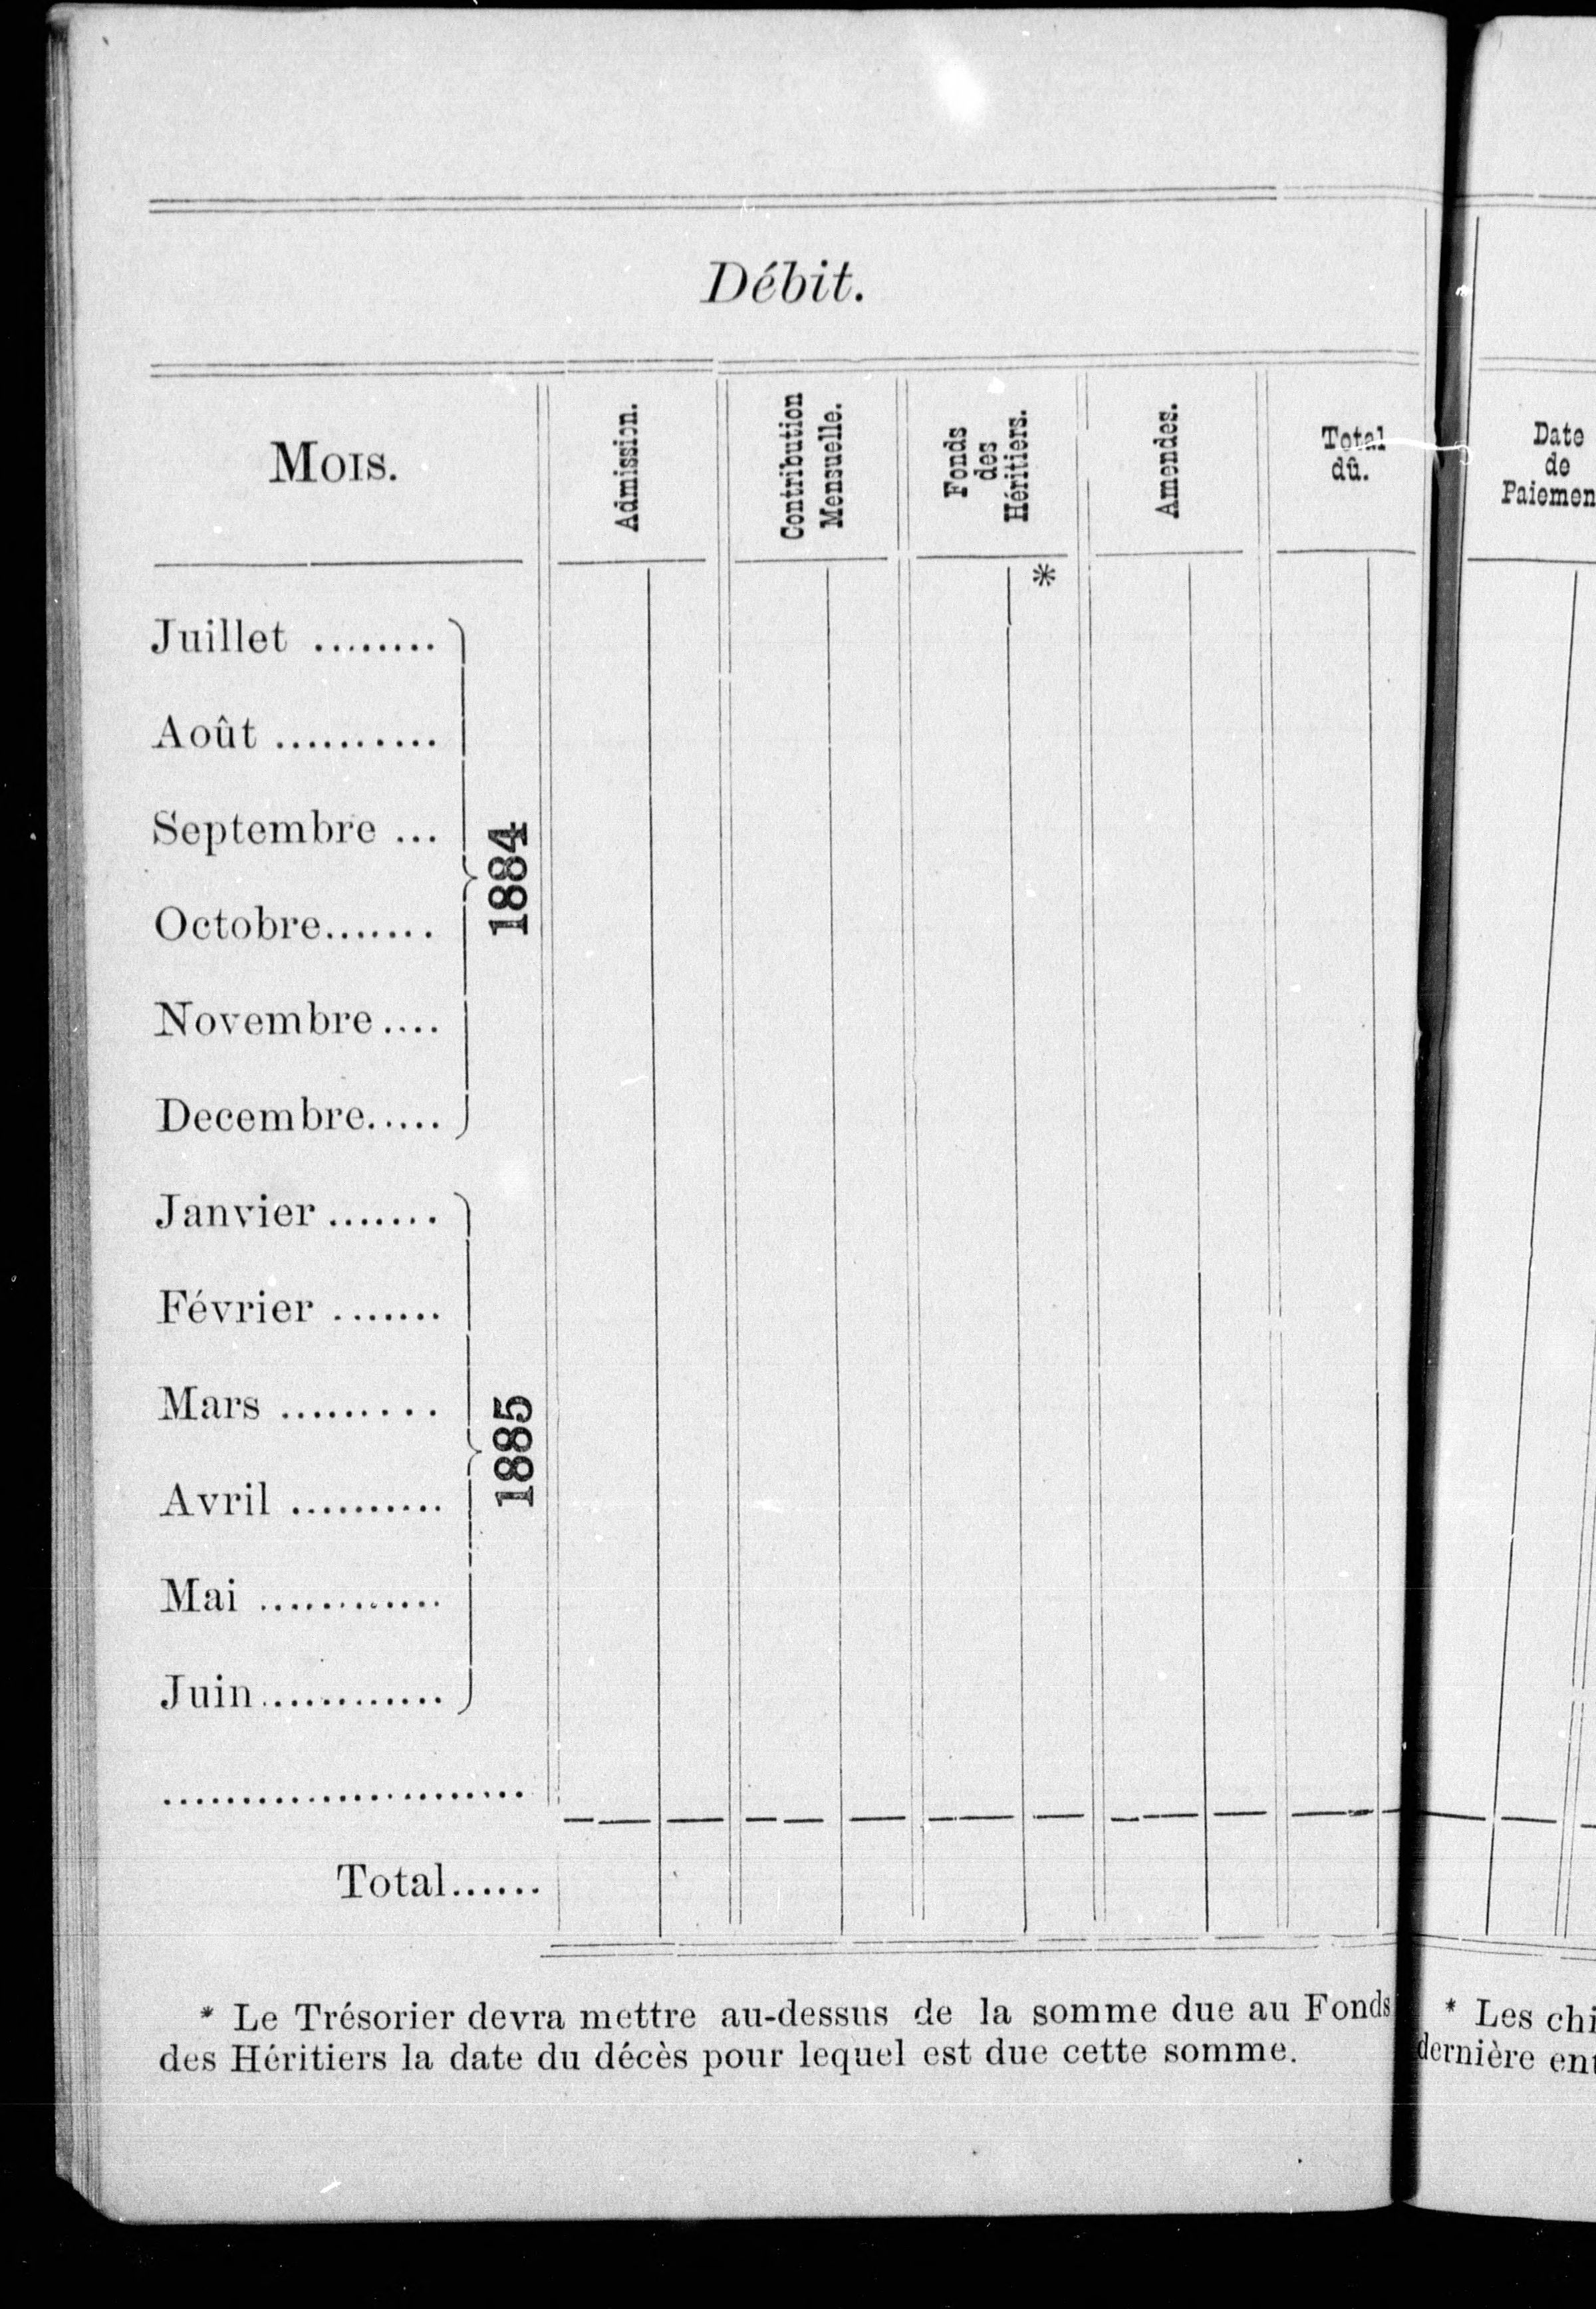 Débit.
Mois.
Admission.
Contribution
Mensuelle.
Fonds
des
Héritiers.
*
Amendes.
Total
dû.
Juillet ........
Août ..........
Septembre ...
Octobre.......
Novembre....
Decembre.....
1884
Janvier.......
Février .......
Mars .........
Avril ..........
Mai ............
Juin............
1885
........................
Total......
* Le Trésorier devra mettre au-dessus de la somme due au Fonds
des Héritiers la date du décès pour lequel est due cette somme.
Date
de
Paiemen
* Les chi
dernière ent